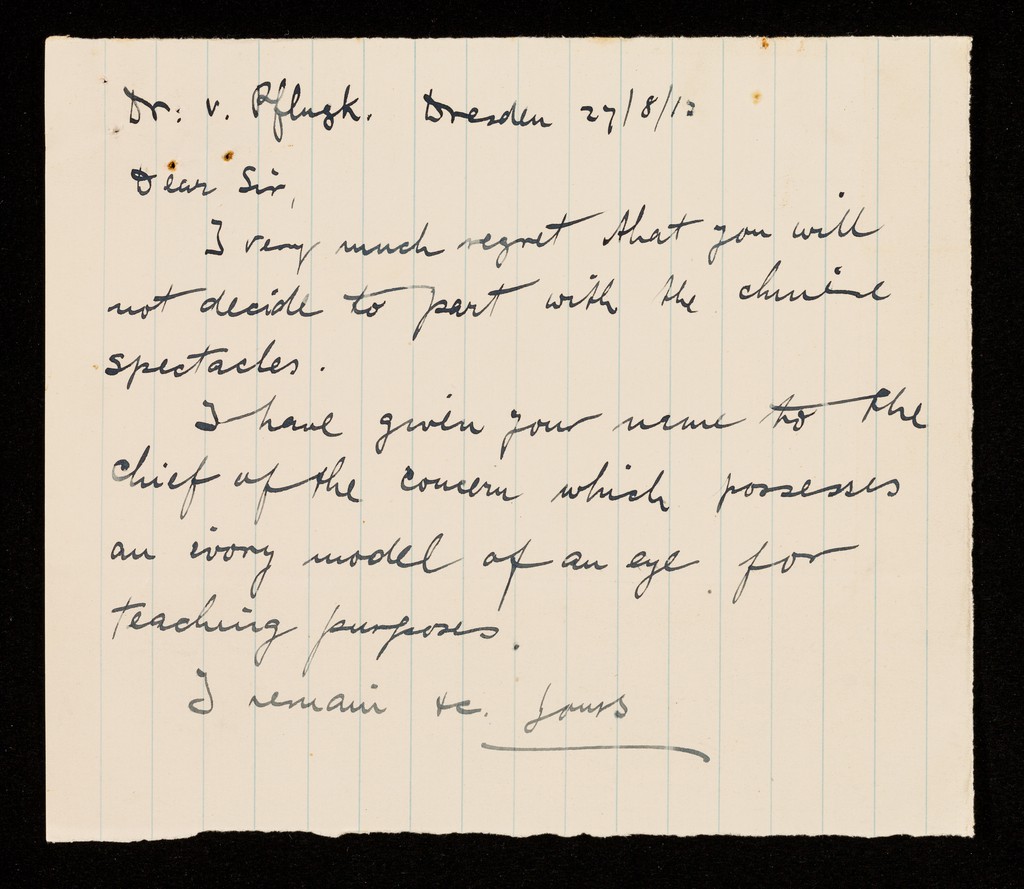 Dr: v. Pflugk. Dresden 27/8/13
Dear Sir,
I very much regret that you will
not decide to part with the chinese
spectacles.
I have given your name to the
chief of the concern which possesses
an ivory model of an eye for
teaching purposes.
I remain &c. yours